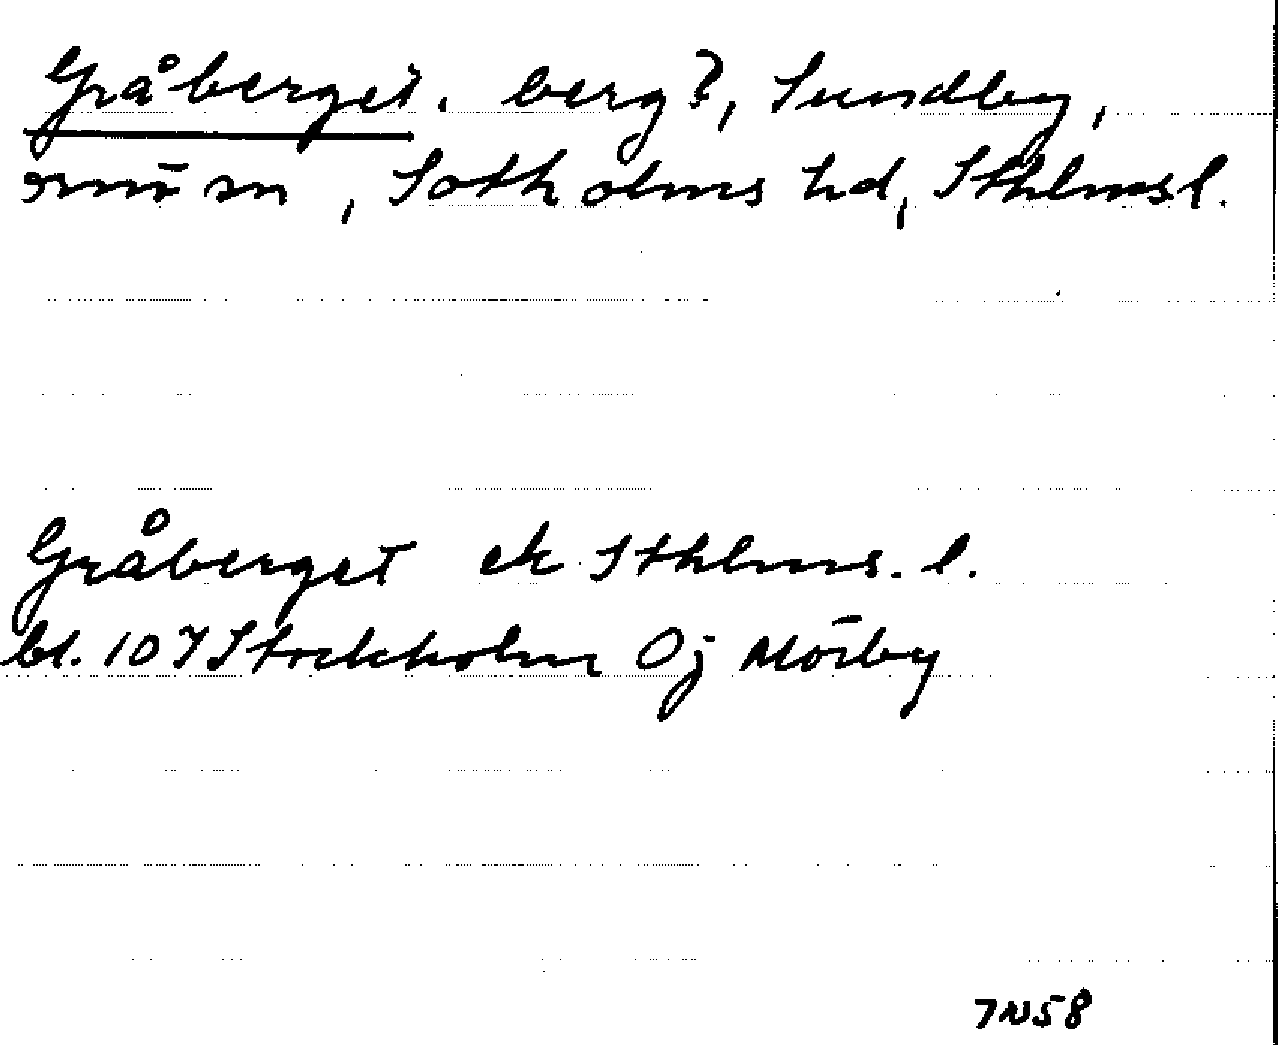 Gråberget, berg?, Sundby,
Ornö sn, Sotholms hd, Sthlms l.
Gråberget ek Sthlms. l.
bl. 107 Stockholm Oj Mörby
7N58